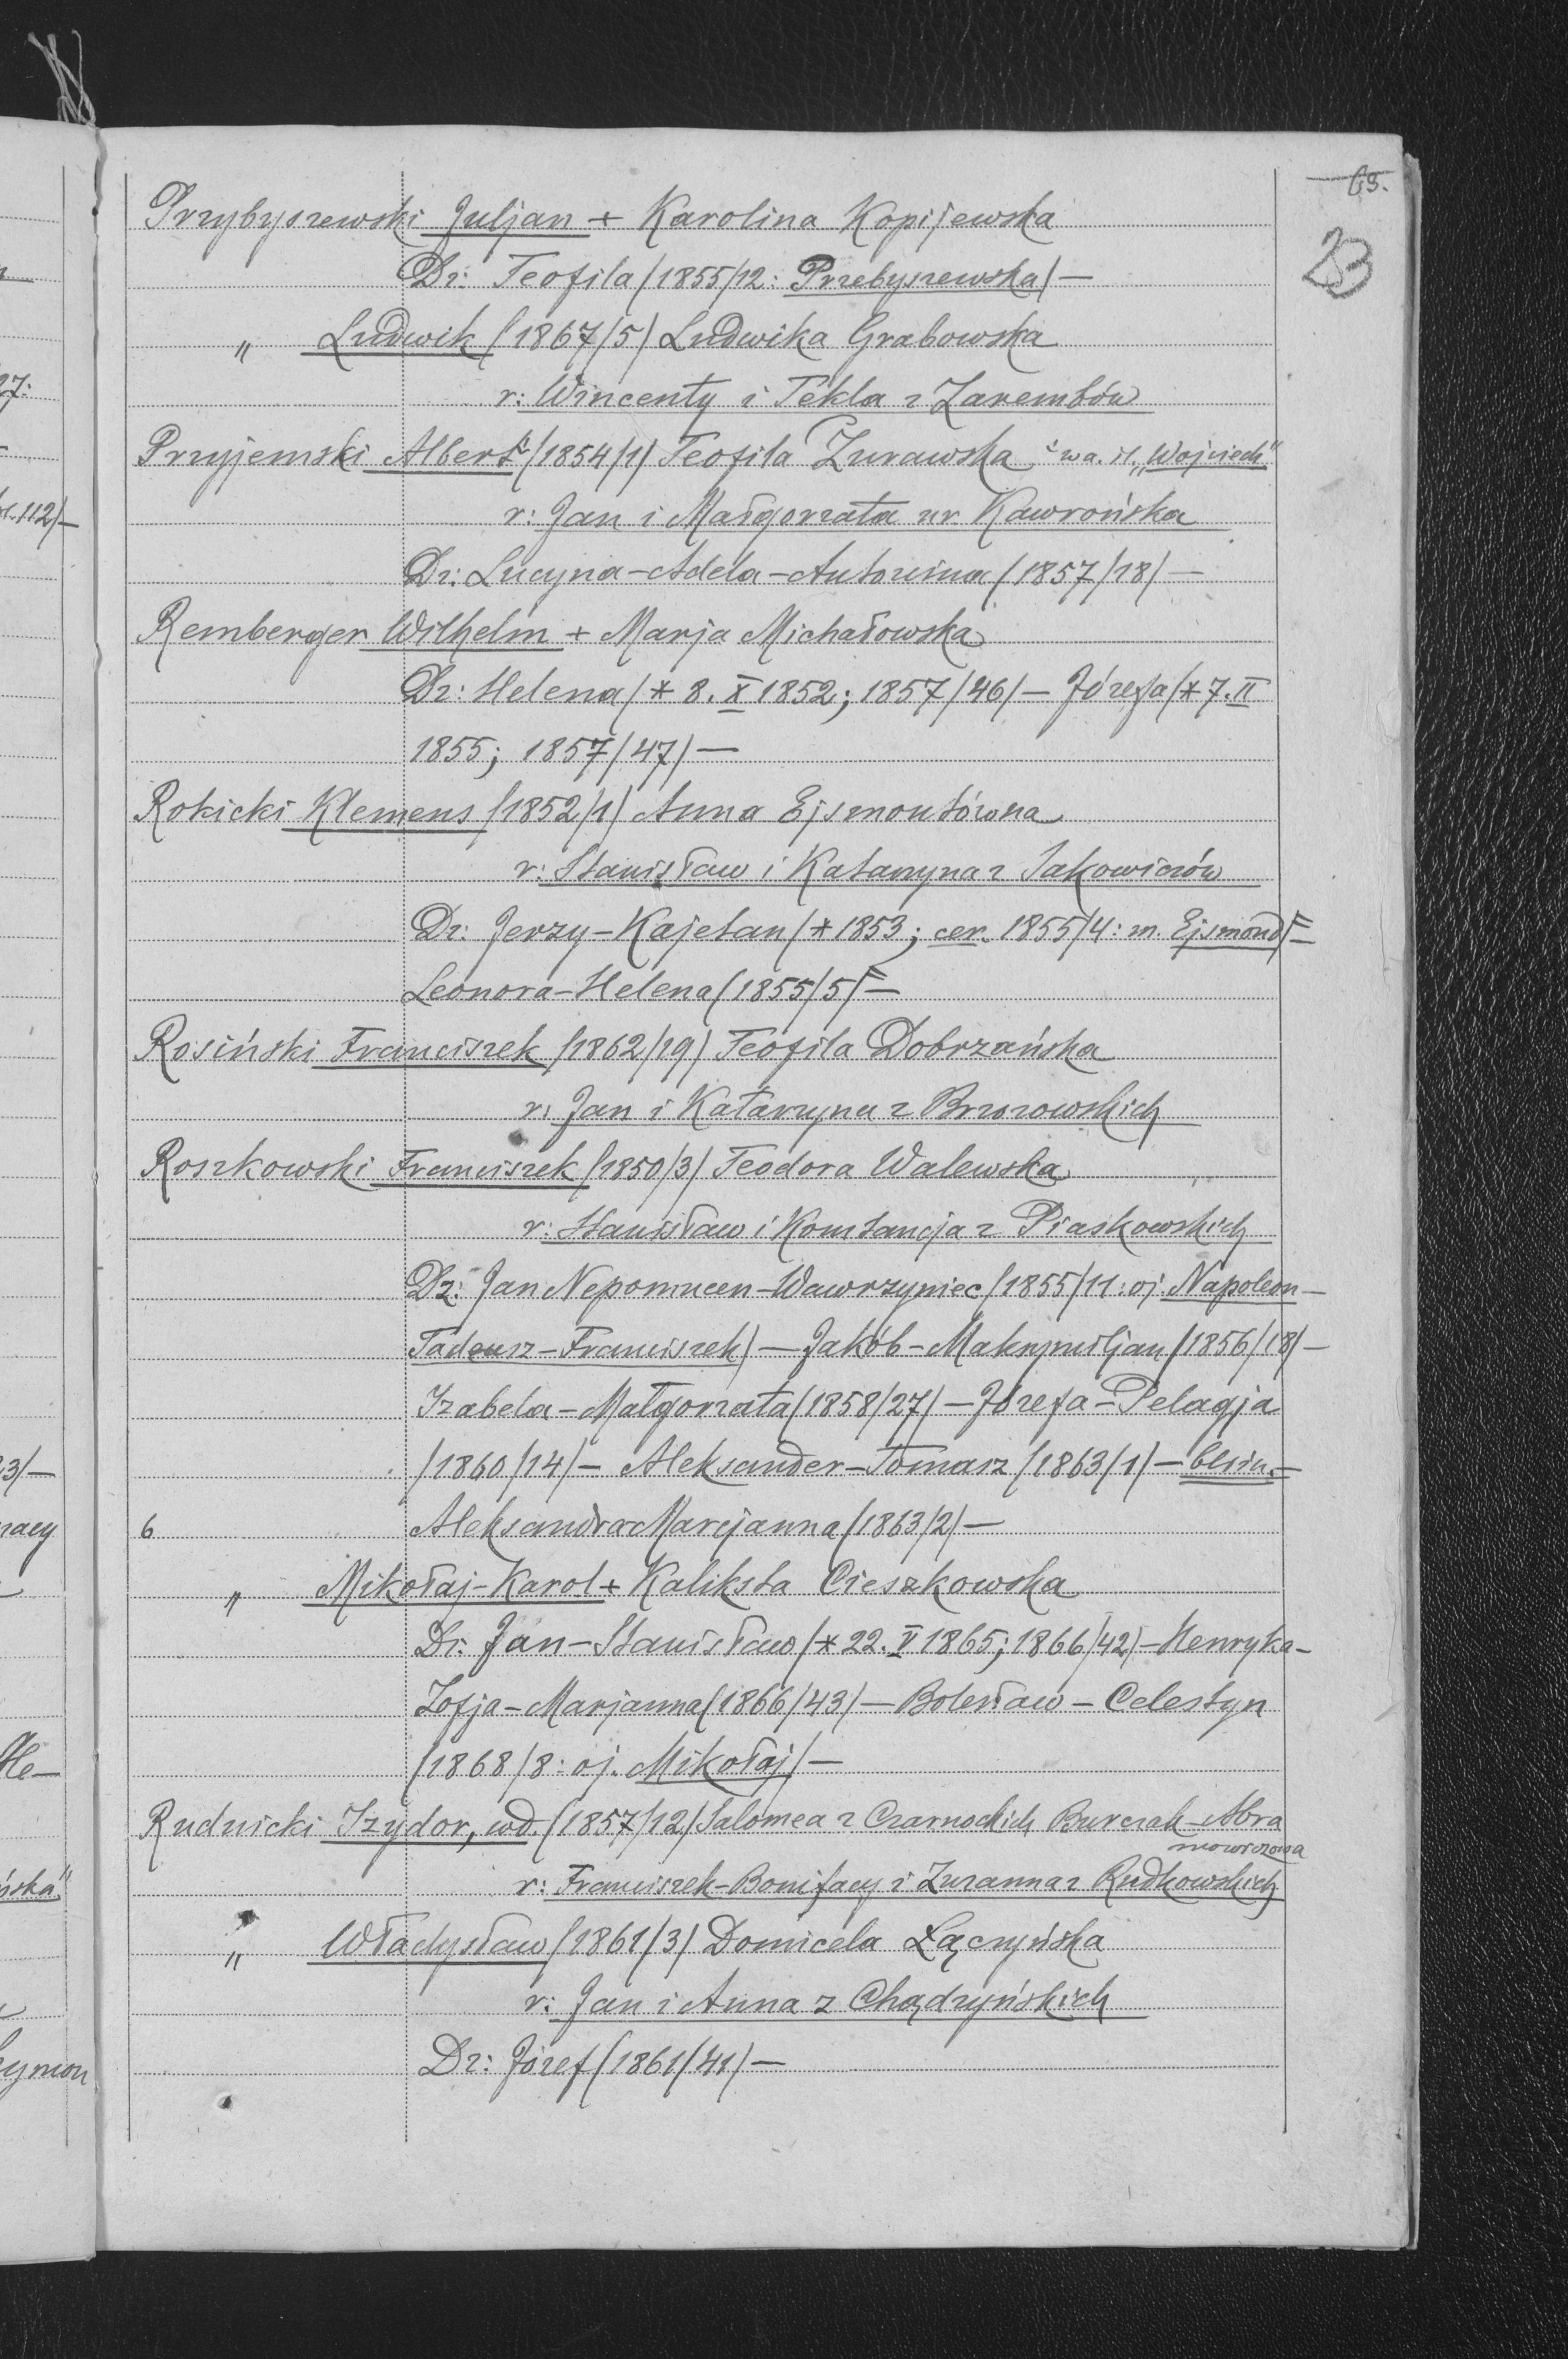 65.
23
Przybyszewski Juljan + Karolina Kopijewska
Dz: Teofila (1855/12: Przebyszewska) —
" Ludwik (1867/5) Ludwika Grabowska
r: Wincenty i Tekla z Zarembów
Przyjemski Albert (1854/1) Teofila Żurawska w a. "Wojciech"
r: Jan i Małgorzata ur Kawrońska
Dz: Lucyna-Adela-Antonina (1857/18) —
Remberger Wilhelm + Marja Michałowska
Dz: Helena (* 8. X 1852; 1857/46) — Józefa (* 7. II
1855; 1857/47) —
Rokicki Klemens (1852/1) Anna Ejsmontówna
r: Stanisław i Katarzyna z Sakowiczów
Dz: Jerzy-Kajetan (* 1853; cer. 1855/4: m. Ejsmond) —
Leonora-Helena (1855/5) —
Rosiński Franciszek (1862/19) Teofila Dobrzańska
r: Jan i Katarzyna z Brzozowskich
Roszkowski Franciszek (1850/3) Teodora Walewska
r: Stanisław i Konstancja z Piaskowskich
Dz: Jan Nepomucen-Wawrzyniec (1855/11: oj. Napoleon-
Tadeusz-Franciszek) — Jakób-Maksymiljan (1856/18) —
Izabela-Małgorzata (1858/27) — Józefa-Pelagja
(1860/14) — Aleksander-Tomasz (1863/1) — bliźn. —
6 Aleksandra Marcjanna (1863/2) —
" Mikołaj-Karol + Kaliksta Cieszkowska
Dz: Jan-Stanisław (* 22. V 1865; 1866/42) — Henryka-
Zofja-Marjanna (1866/43) — Bolesław-Celestyn
(1868/8: oj. Mikołaj) —
Rudnicki Izydor, wd. (1857/12) Salomea z Czarnockich Burczak-Abra
mowiczowa
r: Franciszek-Bonifacy i Zuzanna z Rudkowskich
" Władysław (1861/3) Domicela Łączyńska
r: Jan i Anna z Chądzyńskich
Dz: Józef (1861/41) —